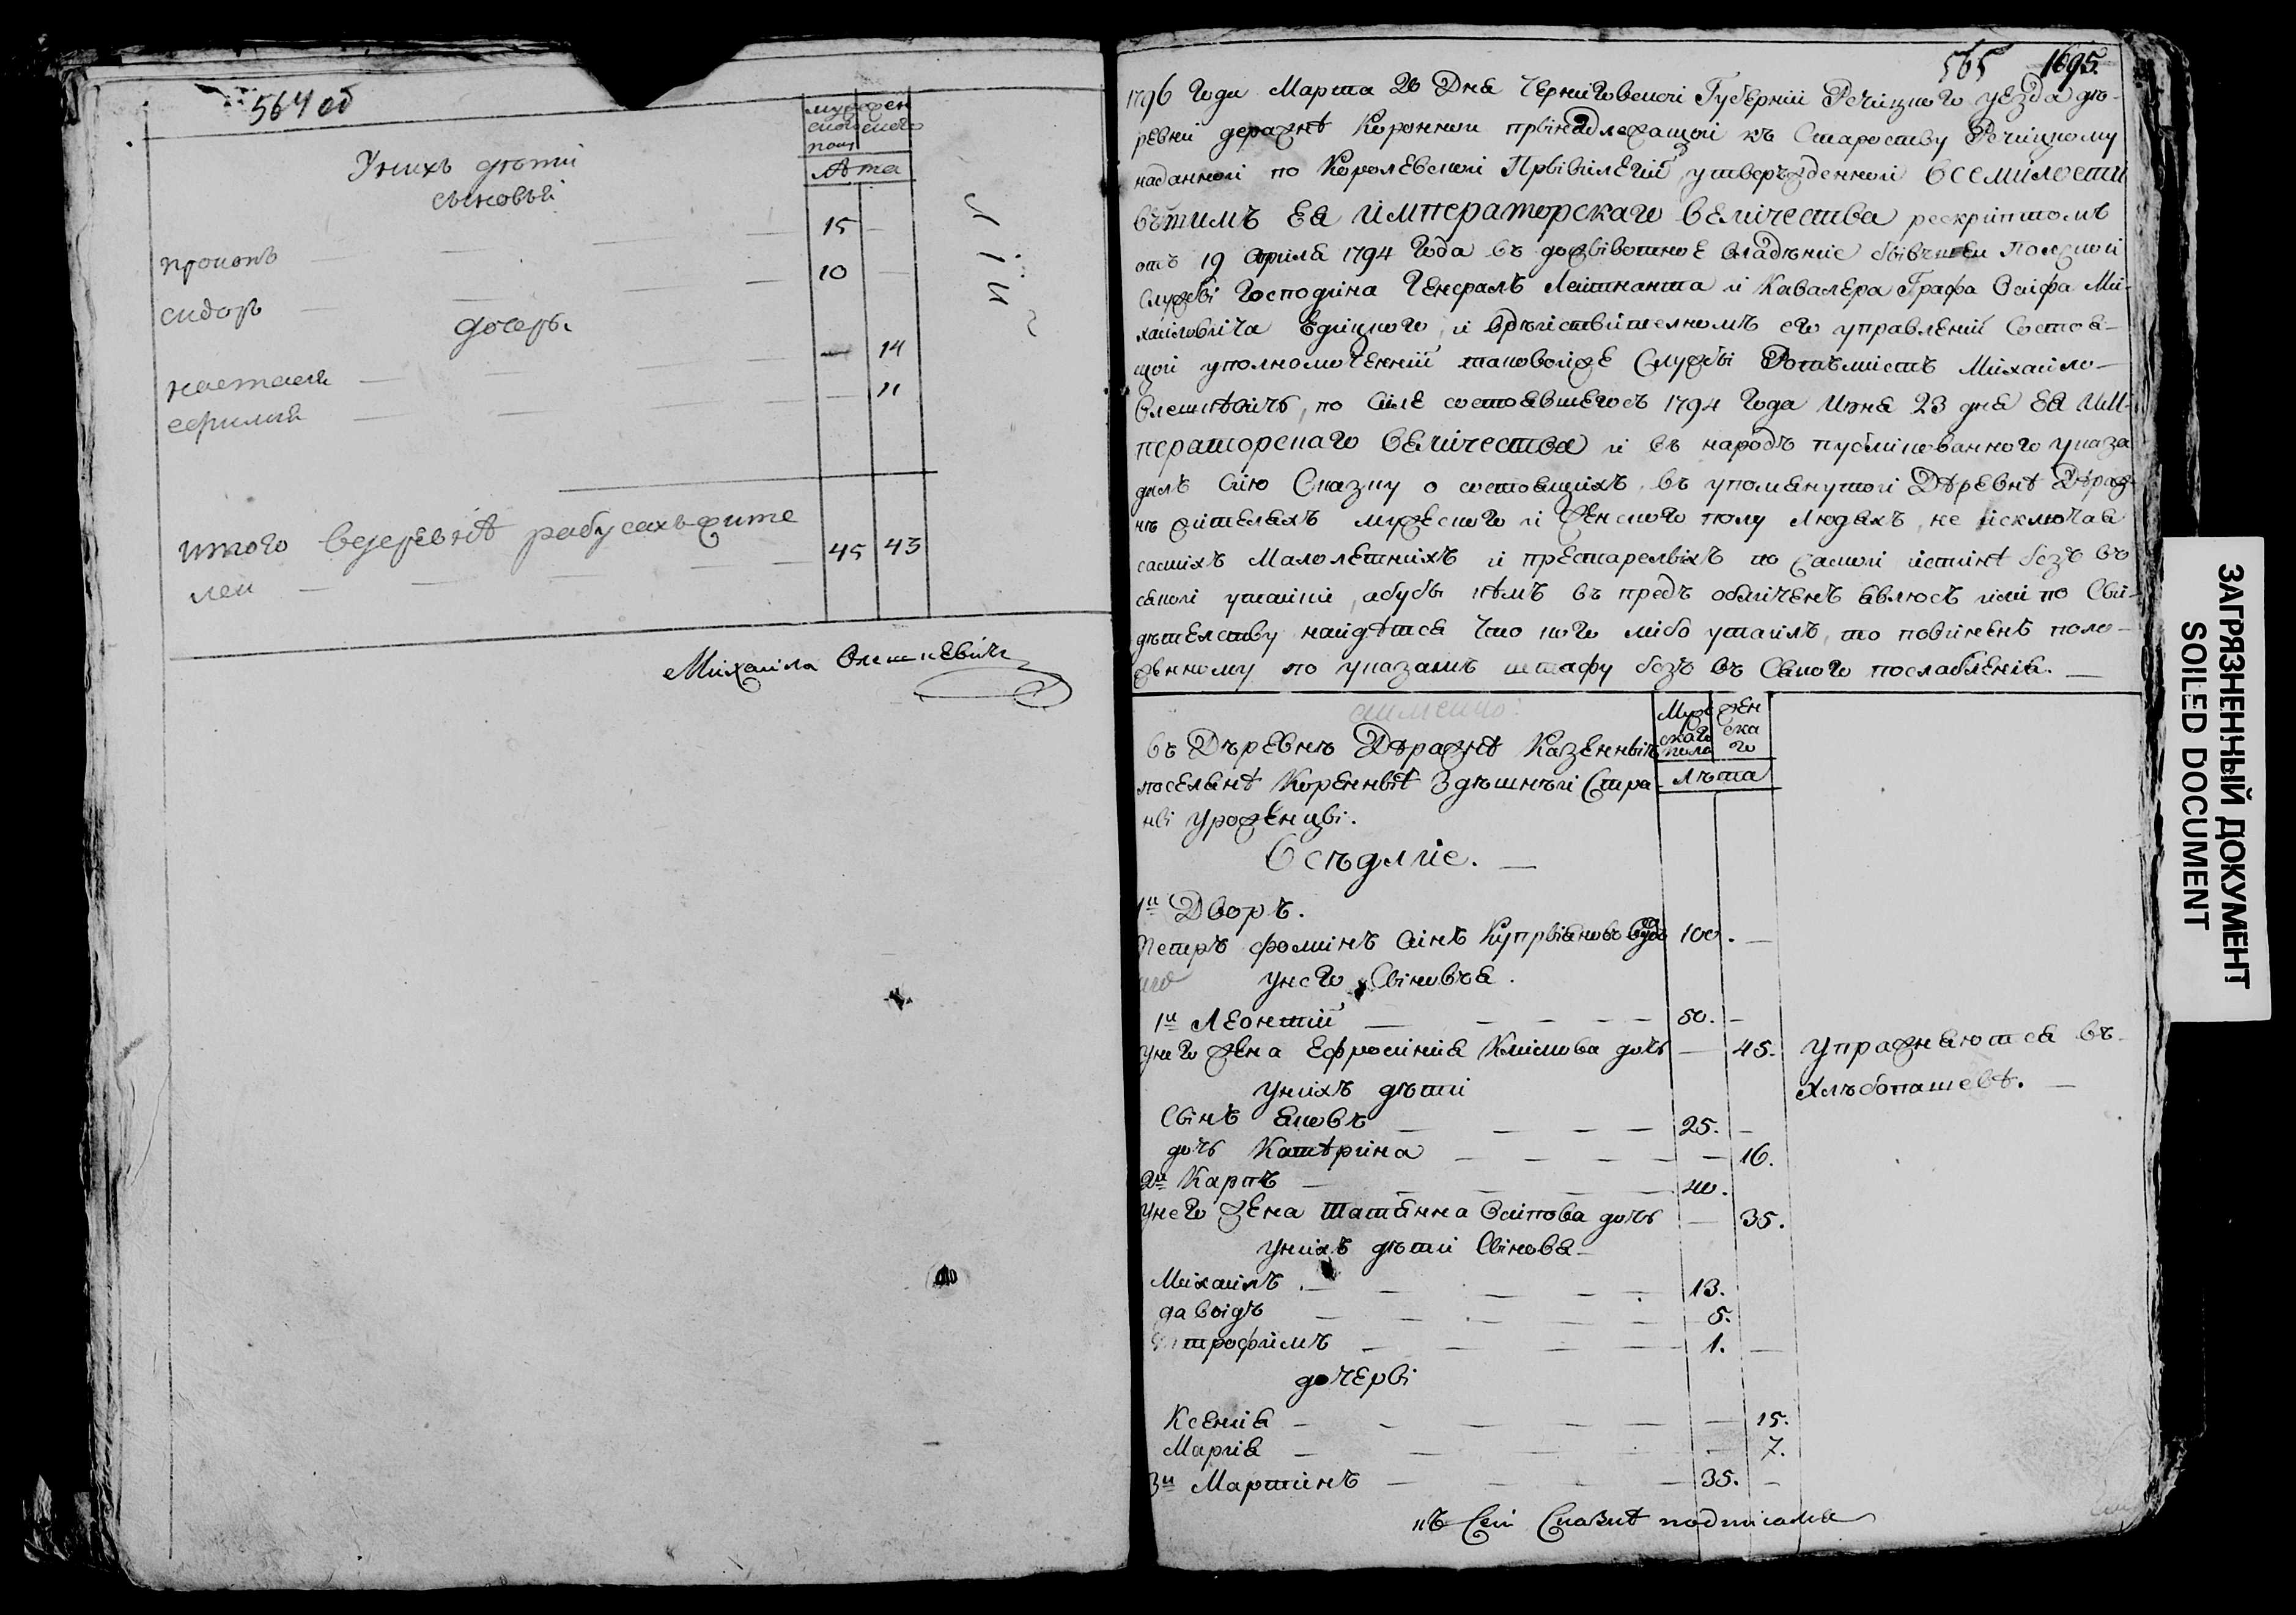 564 об
муж жен
ского ского
полу
Лѣта
Унихъ дѣти
сыновьи
прокопъ — — — 15 —
сидоръ — — — 10 —
дочери
настасия — — — — 14
ефимия — — — — 11
итого вдеревнѣ рабусахъ жите
лей — — — — 45 43
Михаила Олешкевичъ
565 1695.
1796 Года Марта 20 Дня Черниговской Губерніи Речицкого уезда де-
ревни деражнѣ Коронной принадлежащой къ Староству Речицкому
наданной по Королевской Привилегіи, утвержденной всемилости
вѣтимъ Ея императорскаго величества рескриптомъ
отъ 19 Априля 1794 Года въ доживотное владѣніе бывшеи Полской
Службы Господина Генералъ Лейтнанта и Кавалера Графа Осифа Ми-
хайловича Едлицкого, и вдѣйствителномъ его управленіи Состоя-
щой уполномоченнй таковойже Службы Ротъмистъ Михайло
Олешкѣвичъ, по силе состоявшегось 1794 Года Июня 23 дня Ея Им-
ператорскаго величества и въ народъ публикованного указа
далъ сию Сказку о состоящихъ, въ упомянутой Дѣревнѣ Дѣраж-
нѣ жителяхъ мужеского и Женского полу людяхъ, не исключая
самихъ Малолетнихъ и престарелыхъ по самой истинѣ безъ въ
сякой утайки, абуды кѣмъ въ предъ обличенъ явлюсь или по Сви-
дѣтелству найдѣтся Что кого либо утаилъ, то повиненъ поло-
женному по указамъ штрафу безъ въ Сякого послабленія. —
аименно:
Муже жен
ского ска
пола го
Лѣта
въ Дѣревнѣ Дѣражнѣ Казенныѣ
поселянѣ Коренныѣ Здѣшнѣй Стра-
ны уроженцы.
Осѣдліе. —
1й Дворъ.
Петръ фоминъ синъ Куприяновъ вдо 100. —
унего Сыновья.
1й Леонтій — — — — 50. —
унего жена Ефросинія Климова дочь — 45. Упражняются въ
унихъ дѣти хлѣбопашевѣ. —
Сынъ Яковъ — — — — 25. —
дочь Катѣрина — — — — — 16.
2й Карпъ — — — — 40.
унего жена Татянна Осипова дочь — 35.
унихъ дѣти Сынова
Михаилъ — — — — 13.
давыдъ — — — — 5.
трофимъ — — — — 1. —
дочеры
Ксенія — — — — — 15.
Марія — — — — 7.
3й Мартинъ — — — 35. —
къ Сей Сказкѣ подписался
ЗАГРЯЗНЕННЫЙ ДОКУМЕНТ
SOILED DOCUMENT